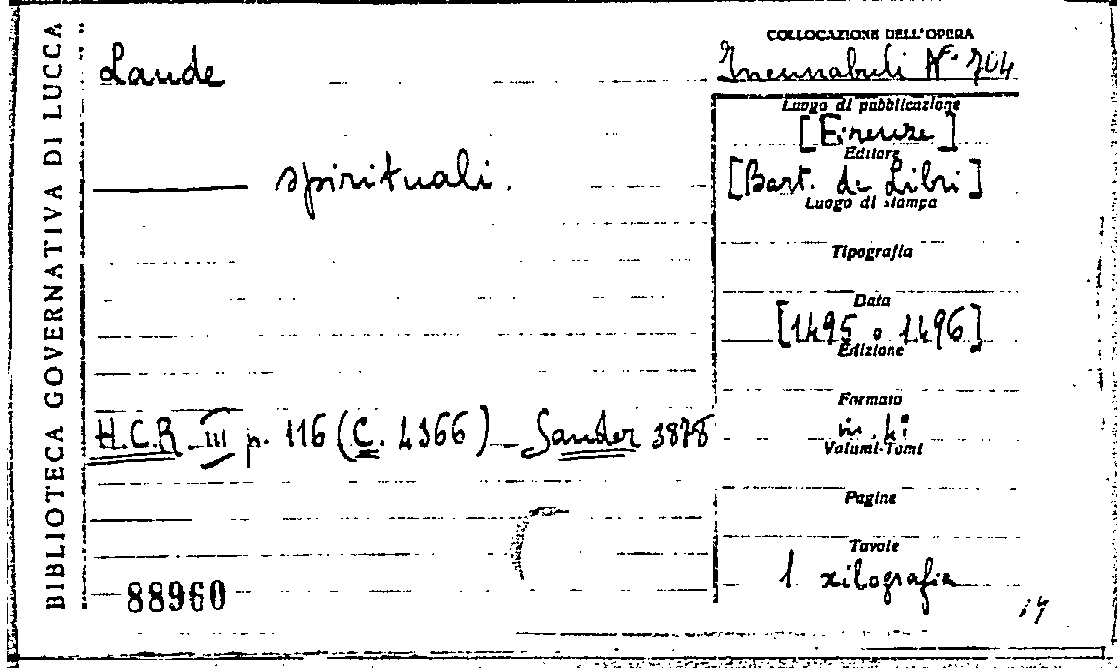 BIBLIOTECA GOVERNATIVA DI LUCCA
COLLOCAZIONE DELL'OPERA
Laude
Incunabuli N° 704
Luogo di pubblicazione
[Firenze]
Editore
——— spirituali.
[Bart. de Libri]
Luogo di stampa
Tipografia
Data
[1495 o 1496]
Edizione
Formato
in 4°
H.C.R. III p. 116 (C. 4366) — Sander 3878
Volumi-Tomi
Pagine
Tavole
1 xilografia
88960